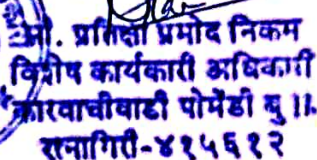 सौ. प्रतिक्षा प्रमोद निकम
विशेष कार्यकारी अधिकारी
कारवाचीवाडी पोमेंडी बु ॥.
रत्नागिरी-४१५६१२